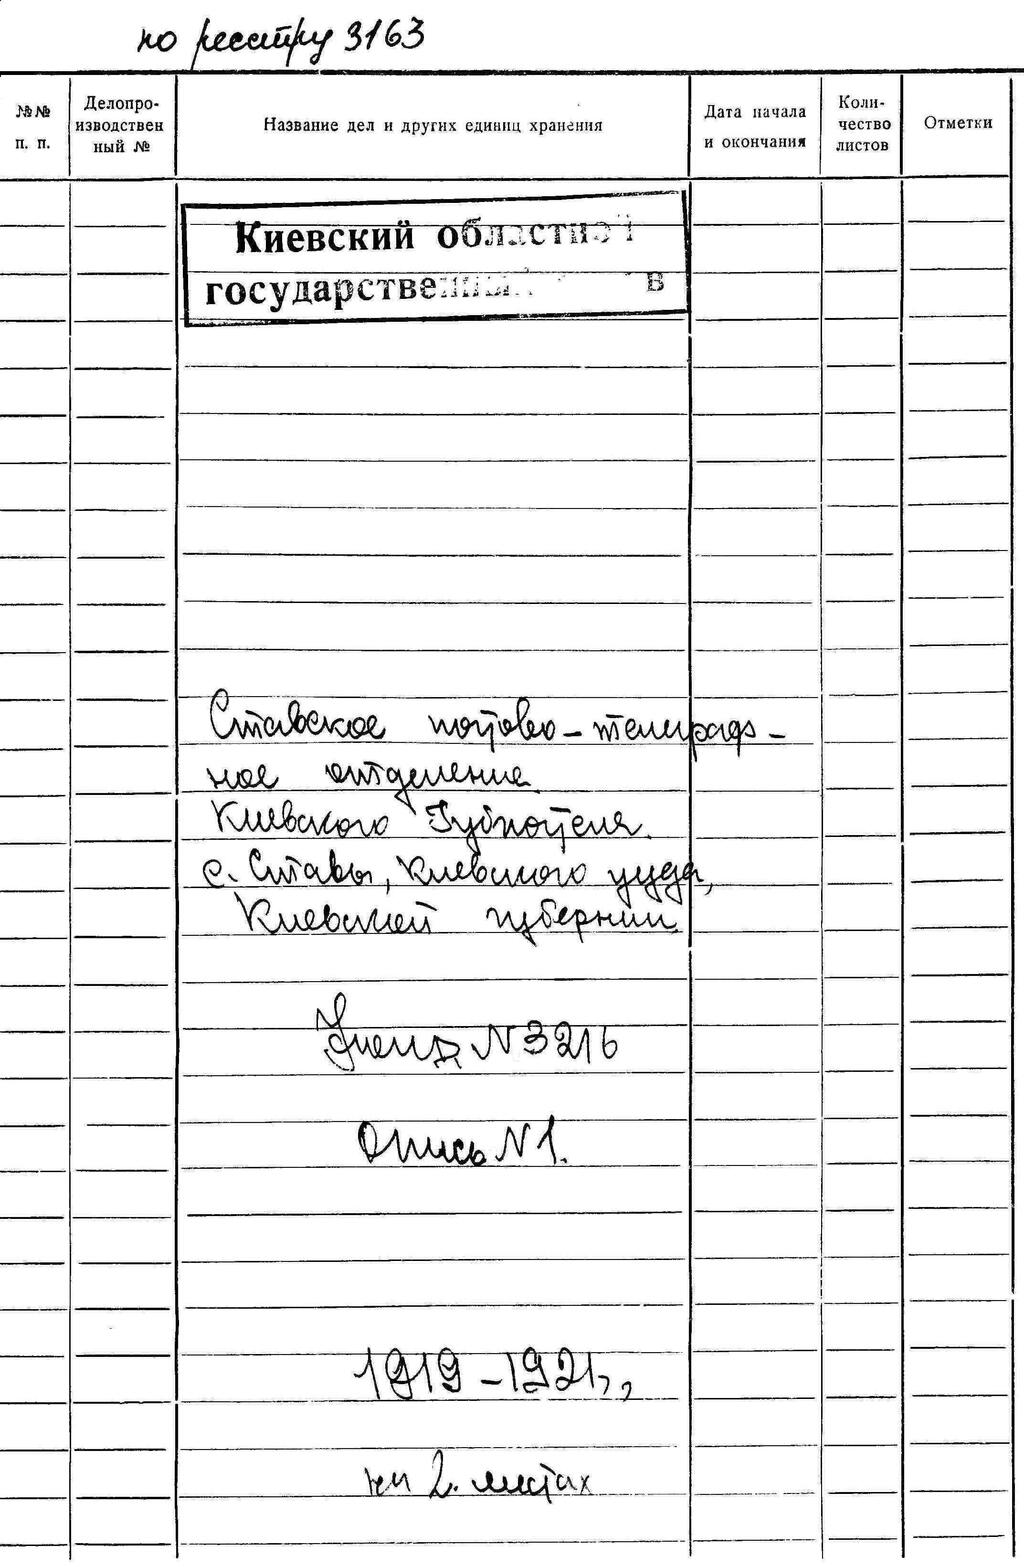 по реестру 3163
№№ п. п.
Делопро-
изводствен
ный №
Название дел и других единиц хранения
Дата начала
и окончания
Коли-
чество
листов
Отметки
Киевский областной
государственный в
Ставское почтово-телеграф-
ное отделение
Киевского Губпочтеля.
с. Ставы, Киевского уезда,
Киевской губернии
Фонд N 3216
Опись N 1.
1919-1921г.г.
на 2. листах